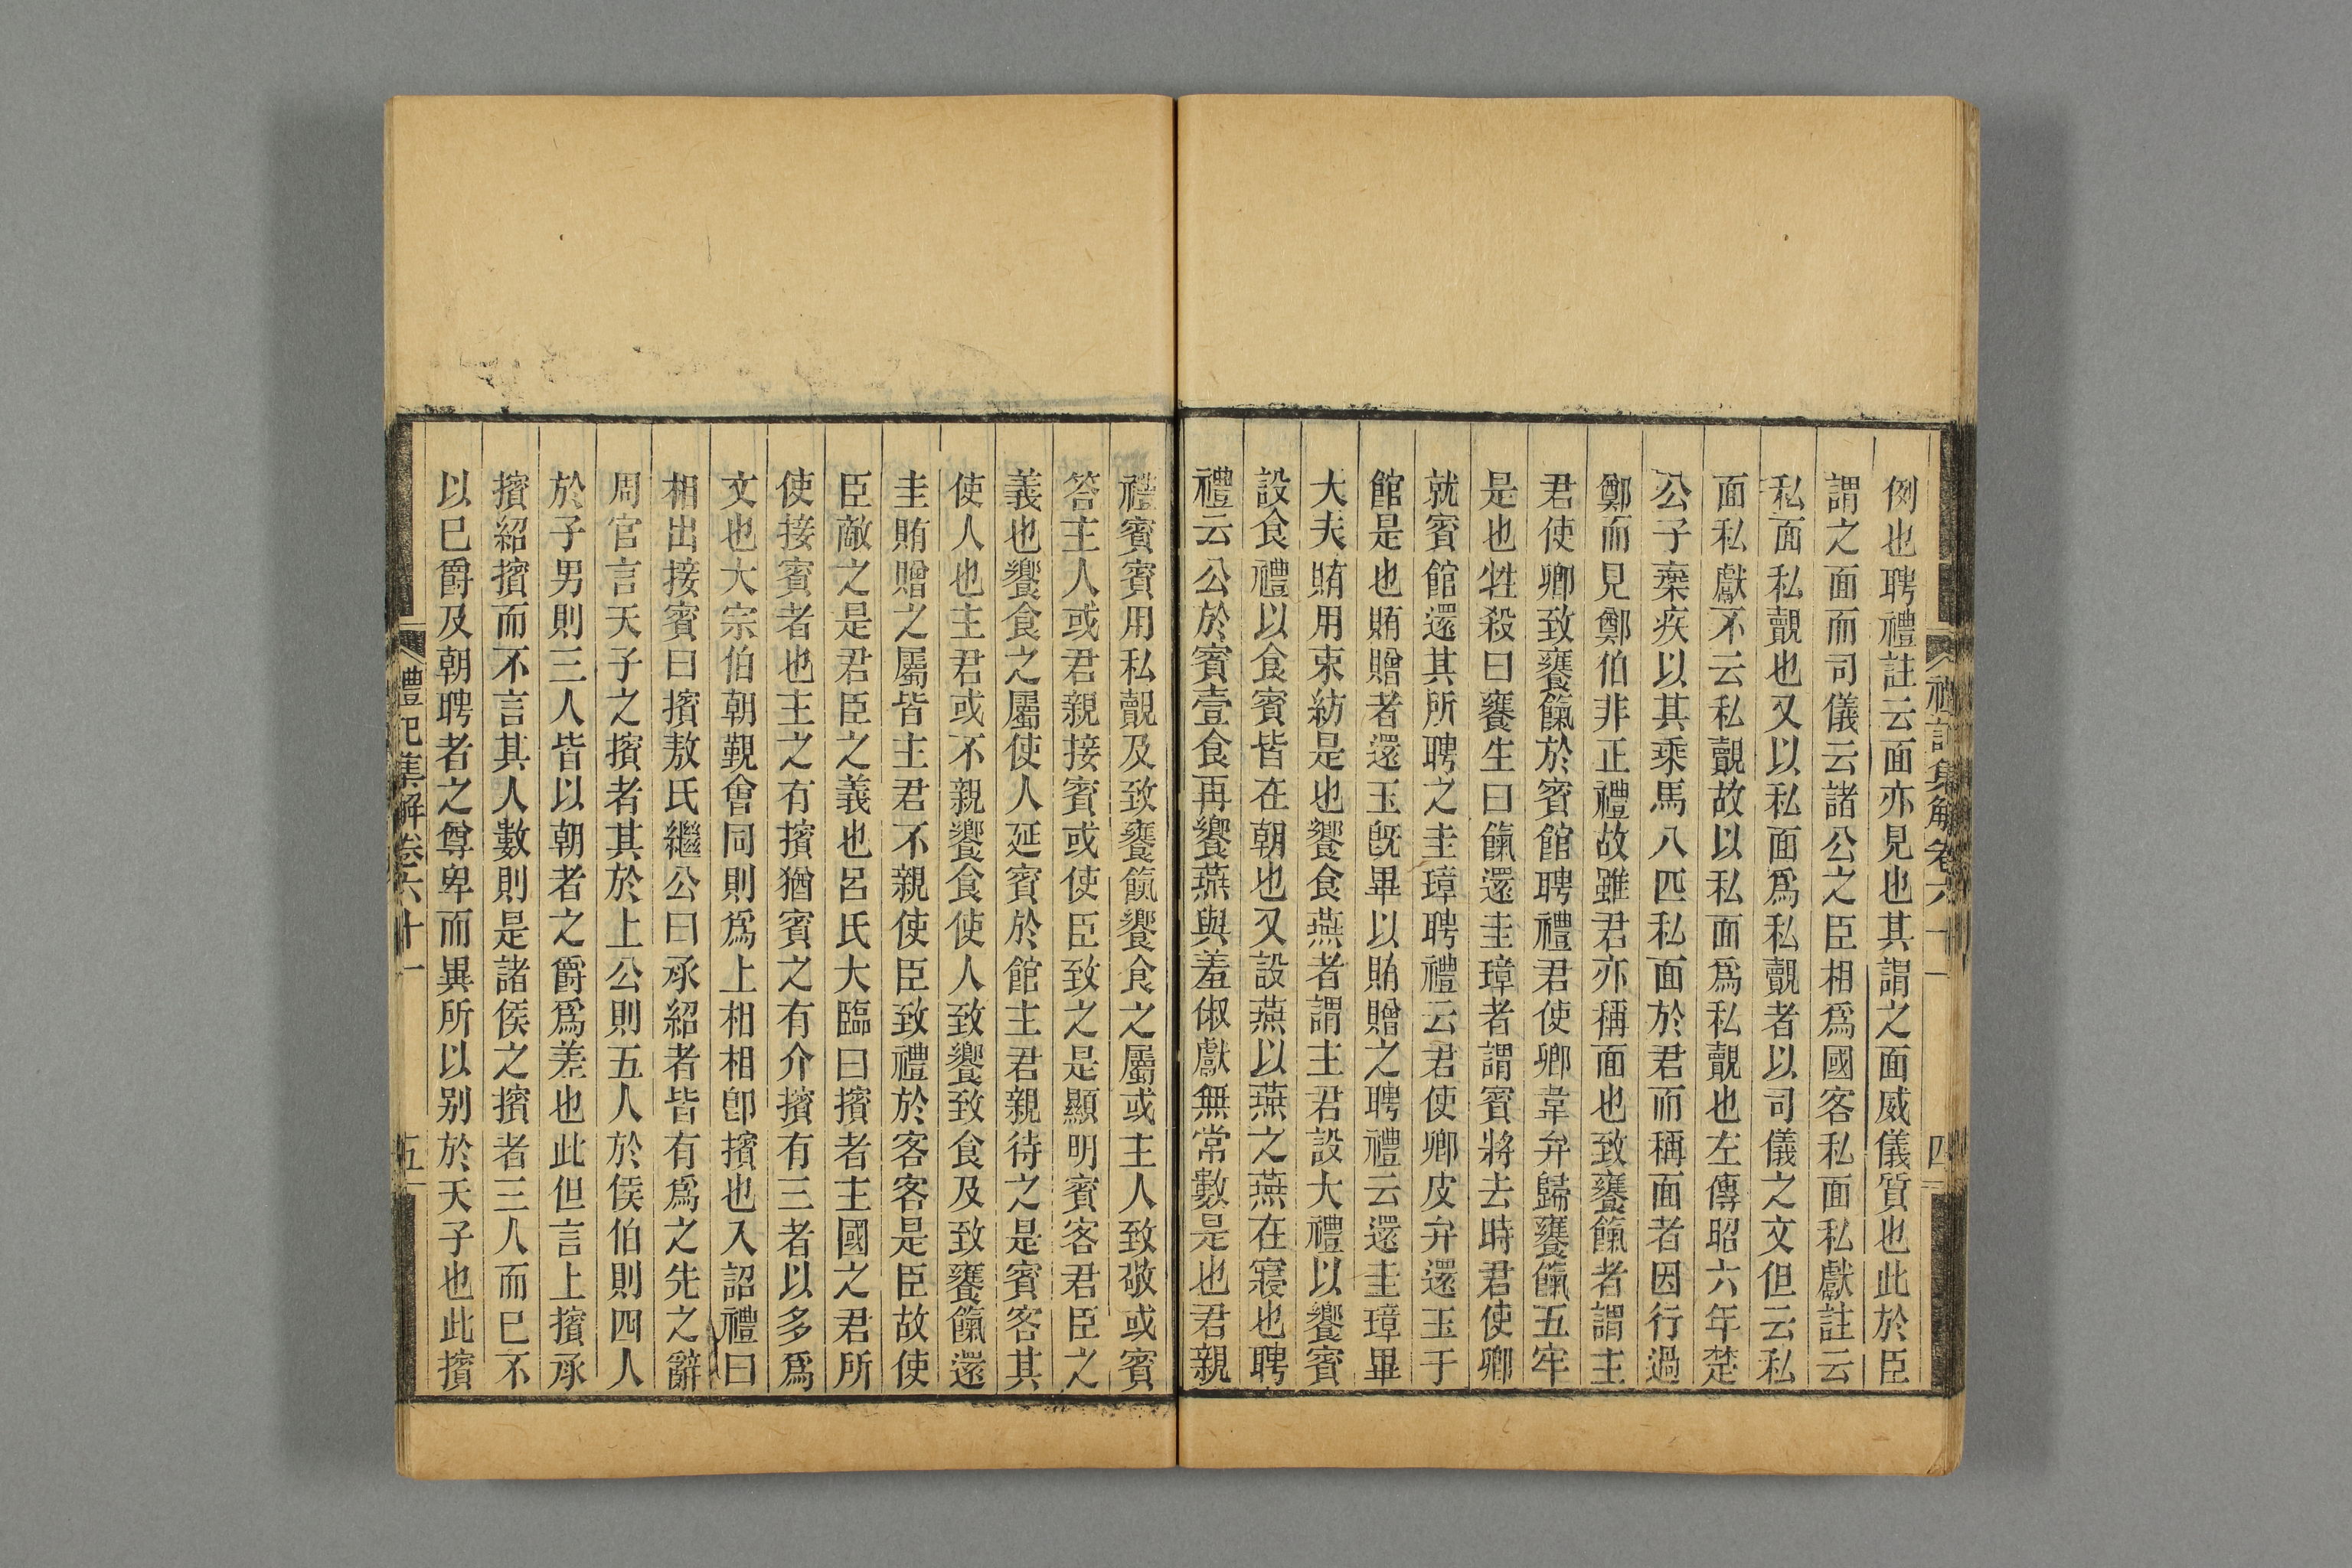 禮記集解卷六十一
四
例也聘禮註云面亦見也其謂之面威儀質也此於臣
謂之面而司儀云諸公之臣相爲國客私面私獻註云
私面私覿也又以私面爲私覿者以司儀之文但云私
面私獻不云私覿故以私面爲私覿也左傳昭六年楚
公子棄疾以其乘馬八匹私面於君而稱面者因行過
鄭而見鄭伯非正禮故雖君亦稱面也致饔餼者謂主
君使卿致饔餼於賓館聘禮君使卿韋弁歸饔餼五牢
是也牲殺曰饔生曰餼還圭璋者謂賓將去時君使卿
就賓館還其所聘之圭璋聘禮云君使卿皮弁還玉于
館是也賄贈者還玉旣畢以賄贈之聘禮云還圭璋畢
大夫賄用束紡是也饗食燕者謂主君設大禮以饗賓
設食禮以食賓皆在朝也又設燕以燕之燕在寢也聘
禮云公於賓壹食再饗燕與羞俶獻無常數是也君親
禮賓賓用私覿及致饔餼饗食之屬或主人致敬或賓
答主人或君親接賓或使臣致之是顯明賓客君臣之
義也饗食之屬使人延賓於館主君親待之是賓客其
使人也主君或不親饗食使人致饗致食及致饔餼還
圭賄贈之屬皆主君不親使臣致禮於客客是臣故使
臣敵之是君臣之義也呂氏大臨曰擯者主國之君所
使接賓者也主之有擯猶賓之有介擯有三者以多爲
文也大宗伯朝覲會同則爲上相相卽擯也入詔禮曰
相出接賓曰擯敖氏繼公曰承紹者皆有爲之先之辭
周官言天子之擯者其於上公則五人於侯伯則四人
於子男則三人皆以朝者之爵爲差也此但言上擯承
擯紹擯而不言其人數則是諸侯之擯者三人而已不
以已爵及朝聘者之尊卑而異所以别於天子也此擯
禮記集解卷六十一
五